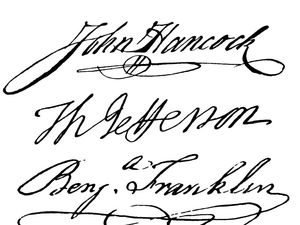 John Hancock
Th Jefferson
Benj. Franklin